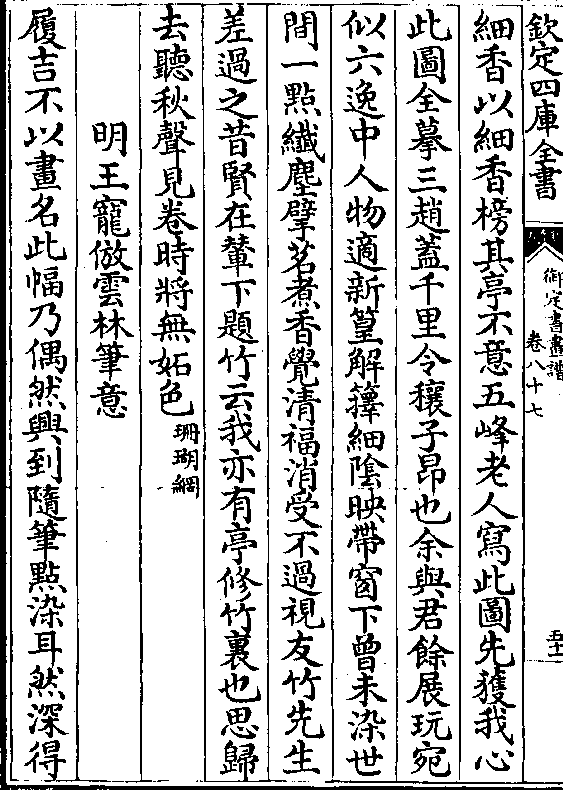 欽定四庫全書
御定書畫譜
卷八十七
五十一
細香以細香榜其亭不意五峰老人寫此圖先獲我心
此圖全摹三趙蓋千里令穰子昂也余與君餘展玩宛
似六逸中人物適新篁解籜細陰映帶窗下曾未染世
間一點纖塵擘茗煮香覺清福消受不過視友竹先生
差過之昔賢在輦下題竹云我亦有亭修竹裏也思歸
去聽秋聲見卷時將無妬色珊瑚網
明王寵倣雲林筆意
履吉不以畫名此幅乃偶然興到隨筆點染耳然深得